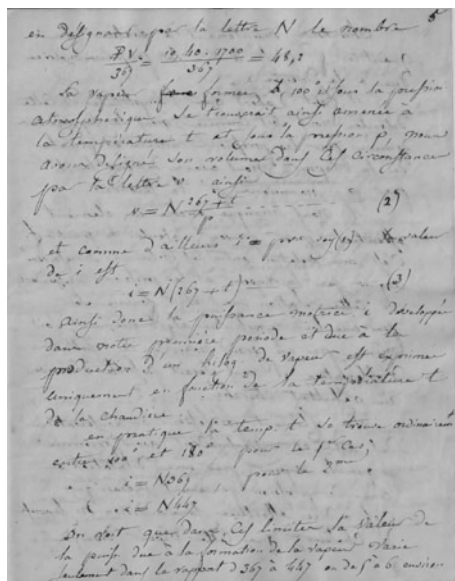 5
en désignant par la lettre N le nombre
PV/367 = 10,40 · 1700/367 = 48,2
La vapeur formée à 100° et sous la pression
atmosphérique se trouvait ainsi amenée à
la température t et sous la pression p, nous
avons désigné son volume dans ces circonstances
par la lettre v ainsi
v = N 267+t/p (2)
et comme d'ailleurs i = pv la valeur
de i est
i = N(267 + t) (3)
Ainsi donc la puissance motrice i développée
dans notre première période et due à la
production d'un kilog de vapeur est exprimée
uniquement en fonction de la température t
de la chaudière.
en pratique la temp. t se trouve ordinairement
entre 100° et 180° pour le 1er Cas,
i = N367 pour le 2me
i = N447
on voit que dans ces limites la valeur de
la puiss. due à la formation de la vapeur varie
seulement dans le rapport d 367 à 447 ou de 5 à 6 environ